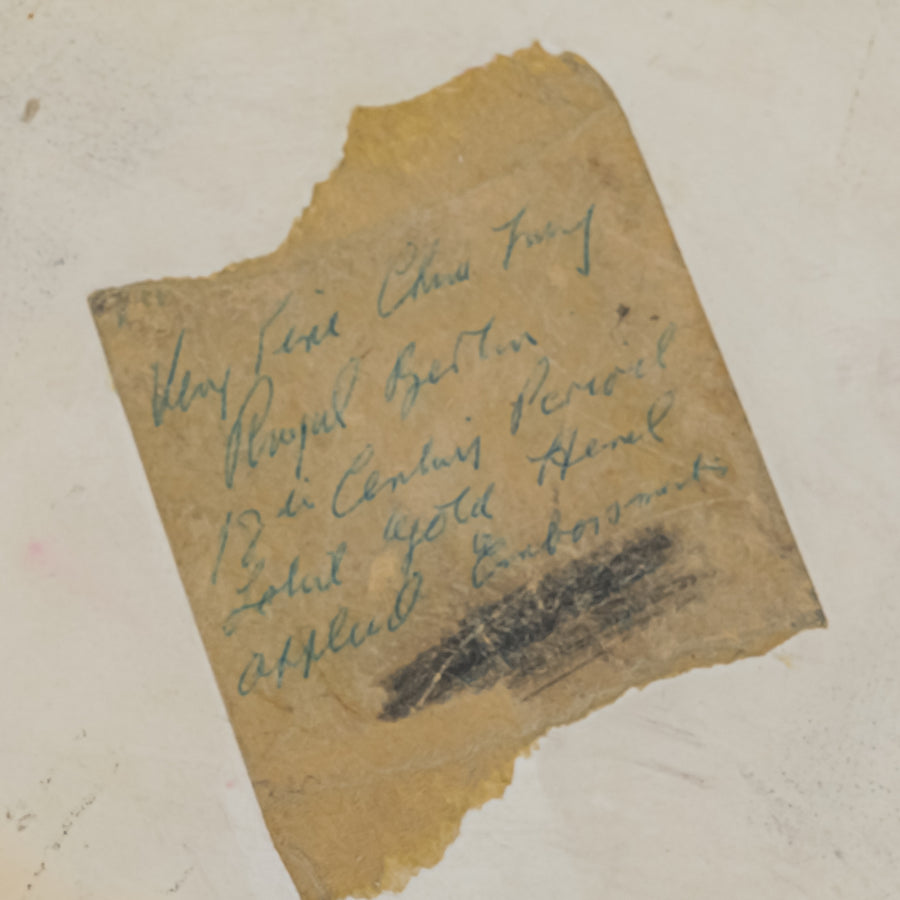 Very Fine
Royal Berlin
18th Century Period
Solid Gold
Applied Embossments